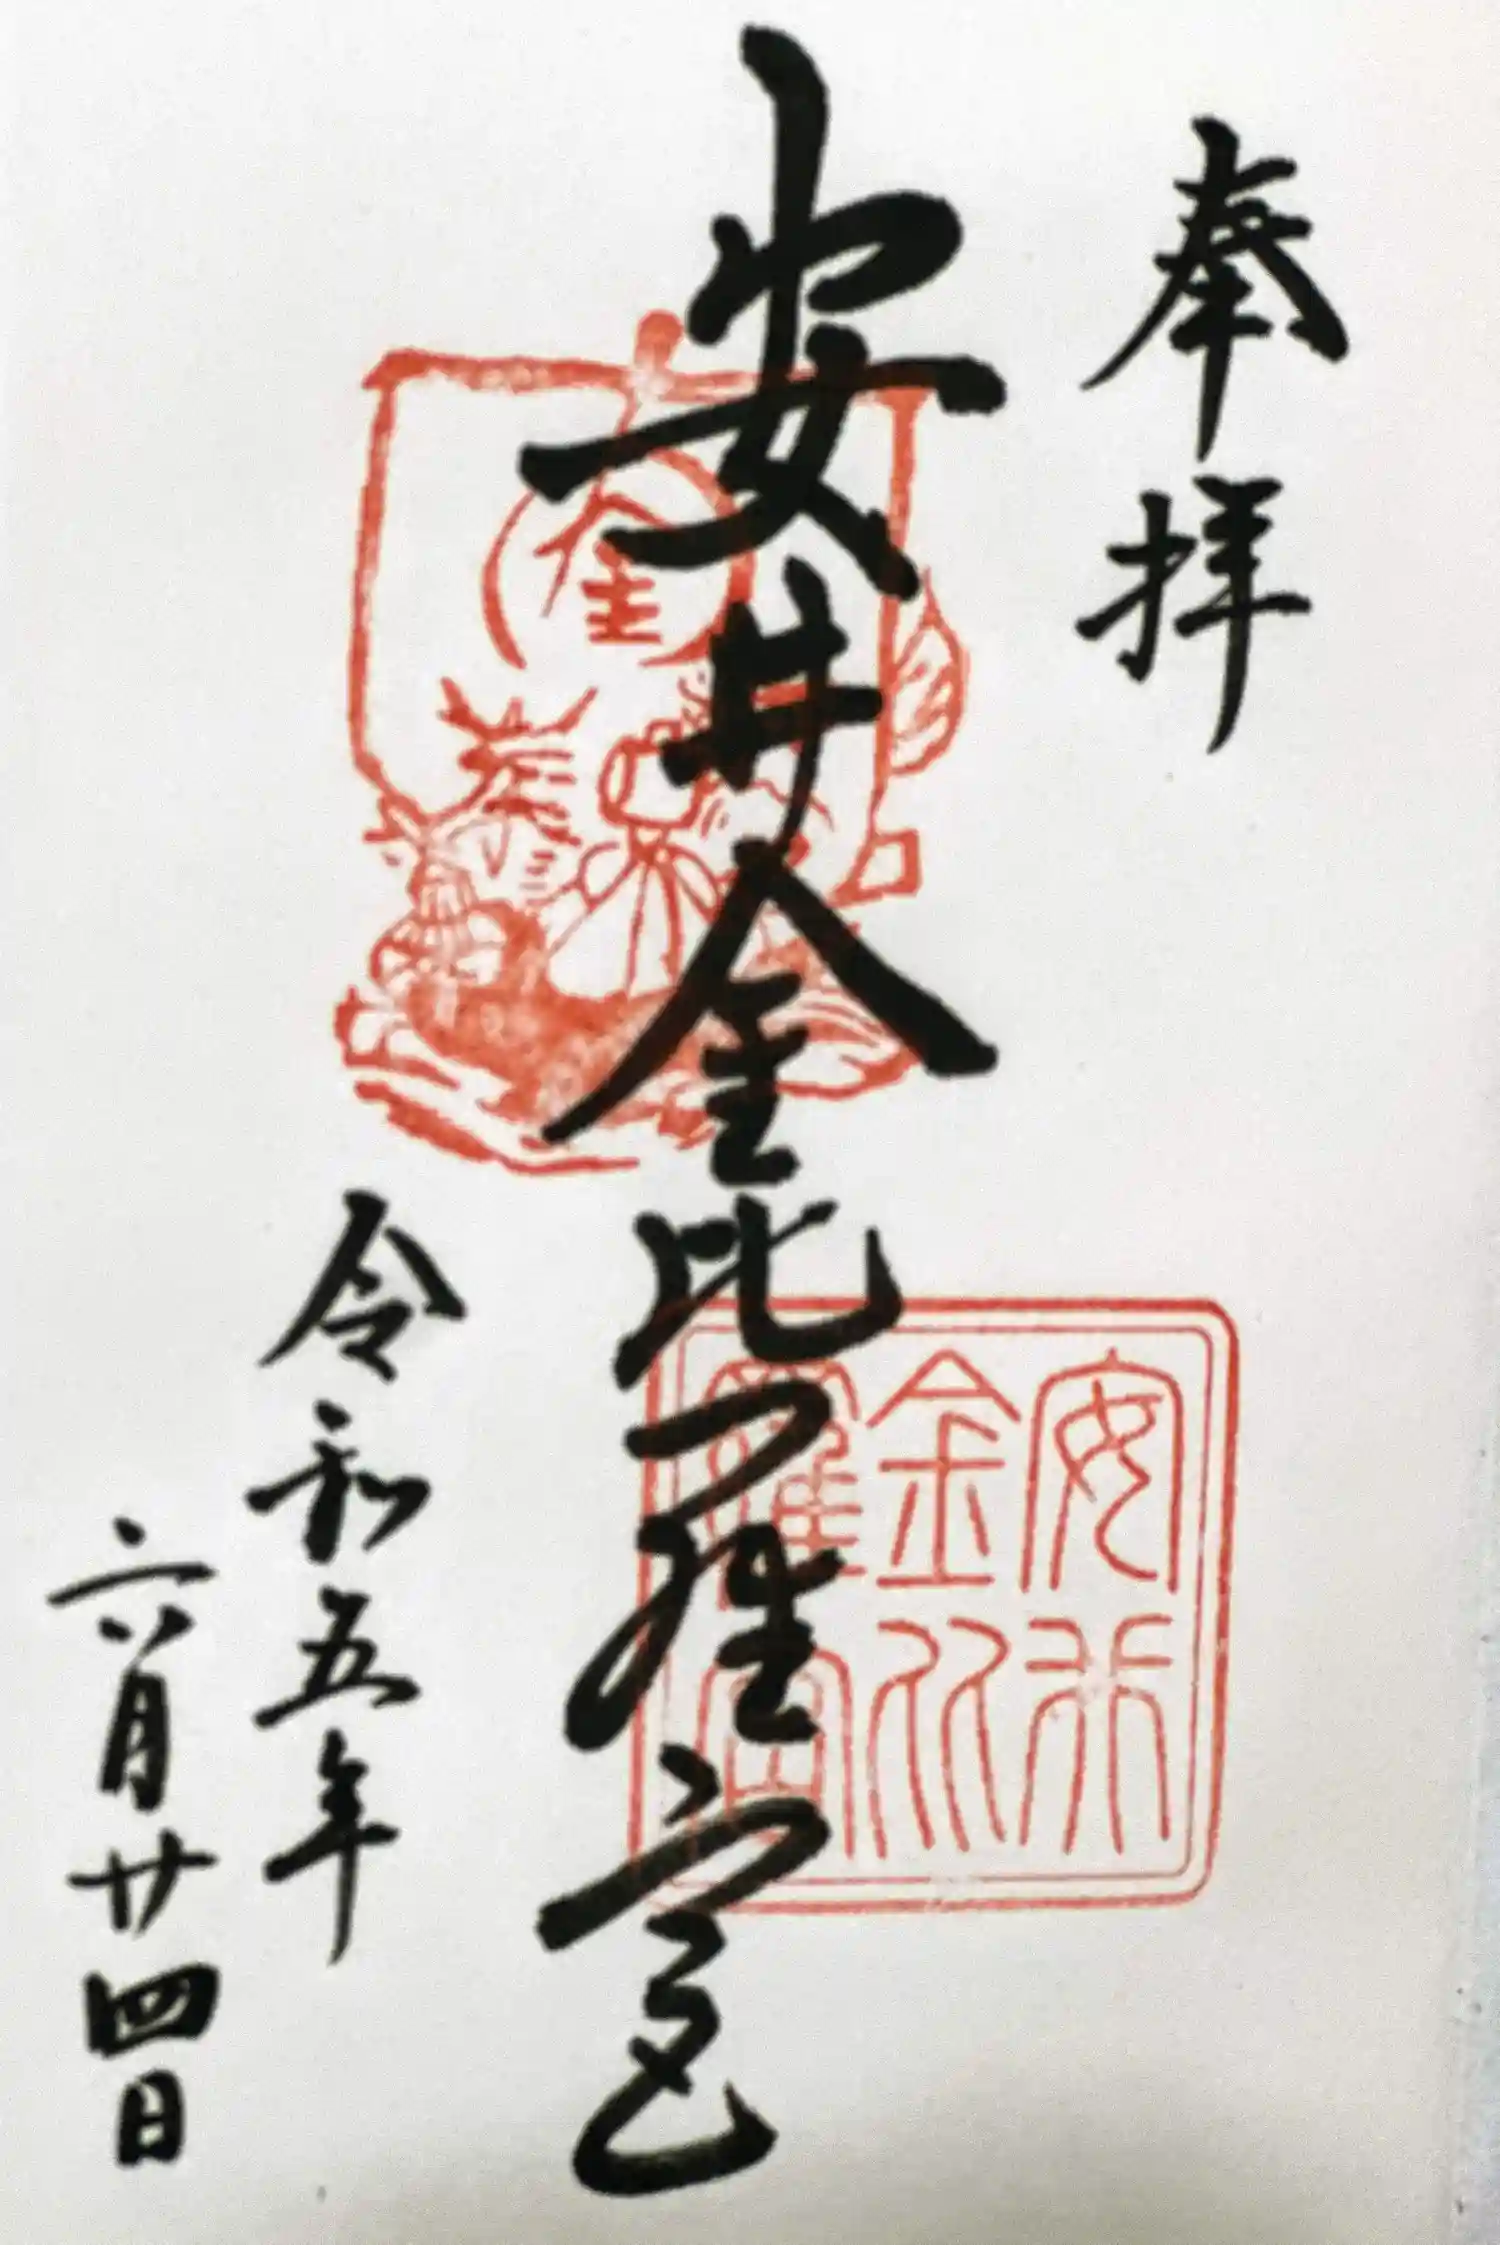 奉拝
安井金比羅宮
金
安井
金比
羅宮
令和五年
六月廿四日